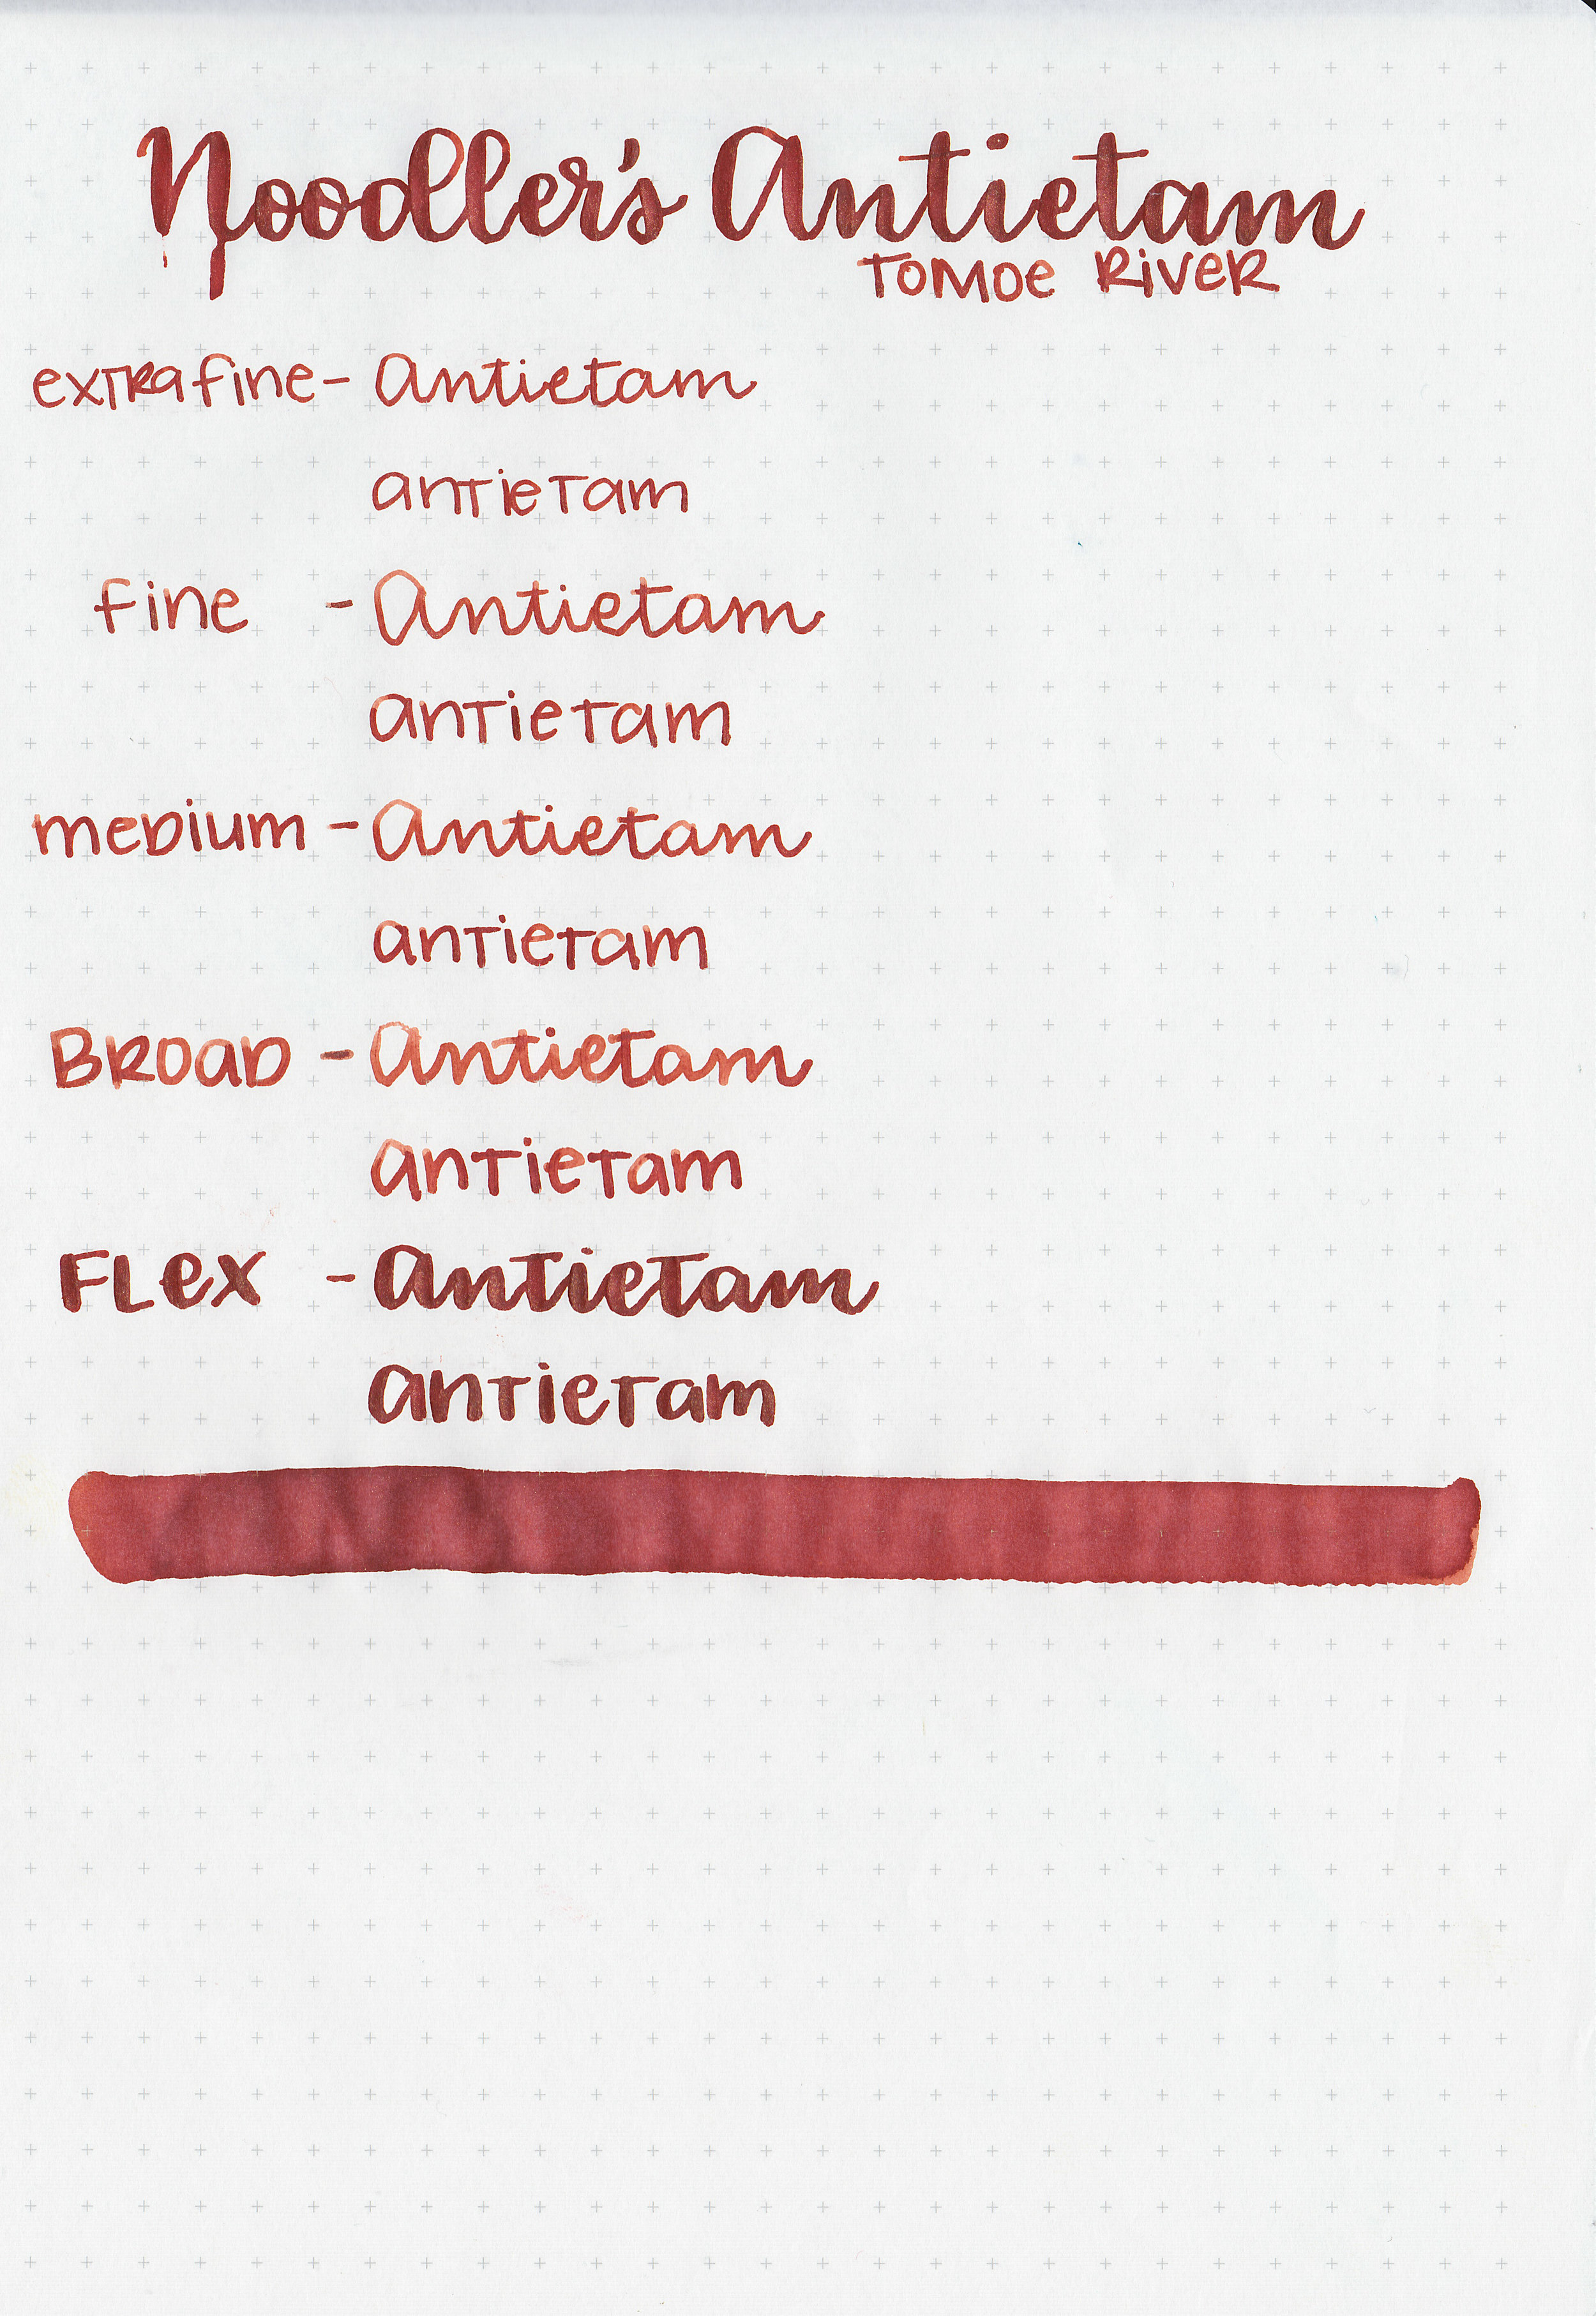 Noodler's Antietam
Tomoe River
extra fine - Antietam
antietam
fine - Antietam
antietam
medium - Antietam
antietam
Broad - Antietam
antietam
Flex - Antietam
antietam